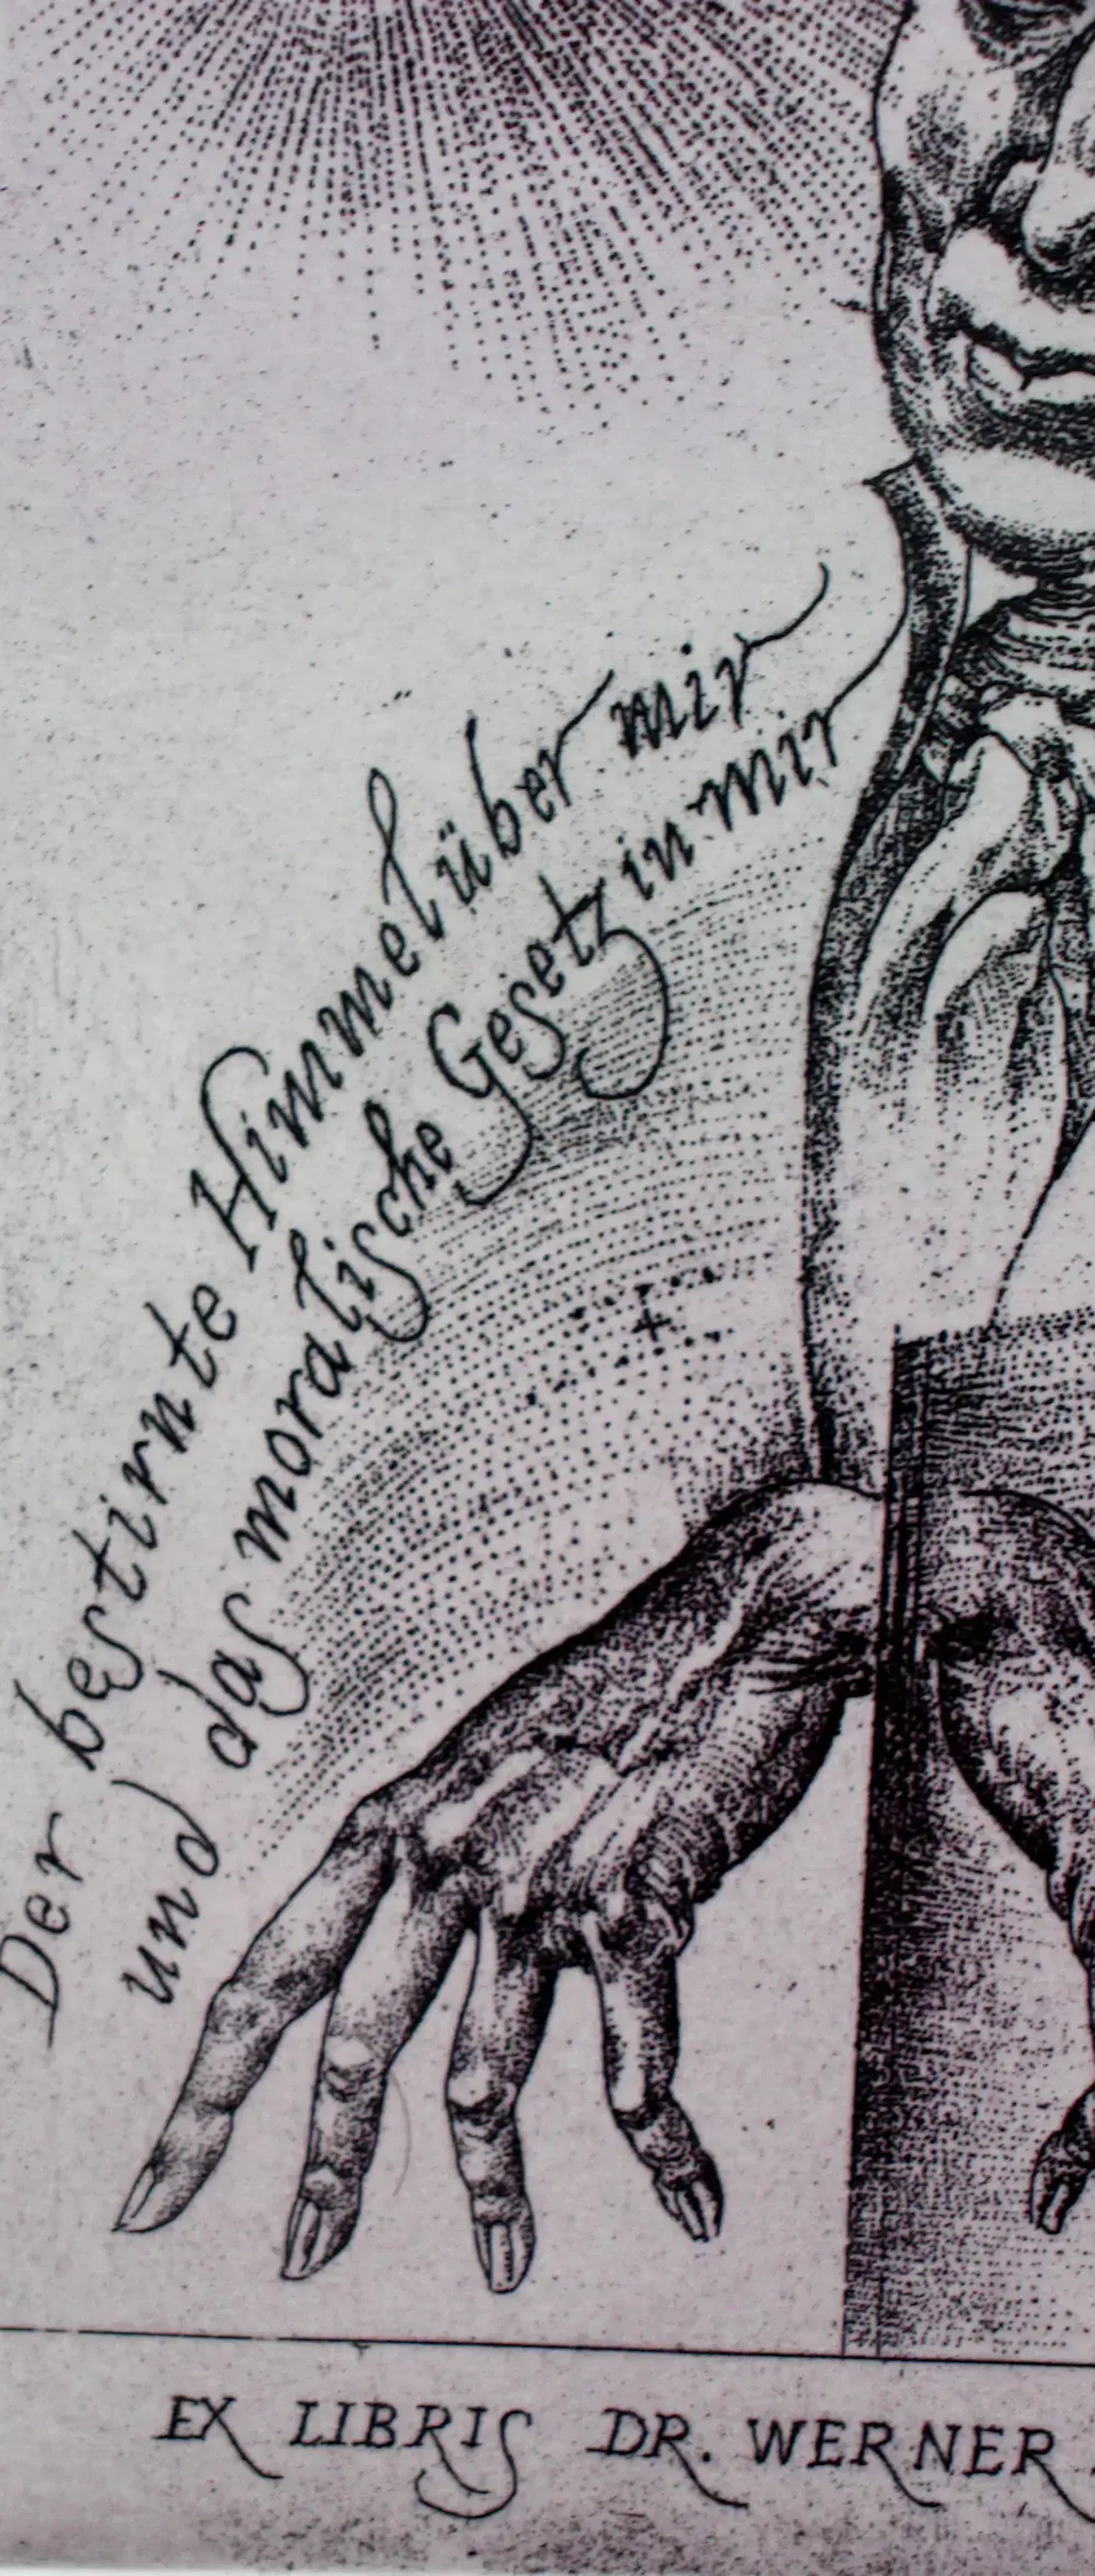 Der bestirnte Himmel über mir
und das moralische Gesetz in mir
EX LIBRIS DR. WERNER